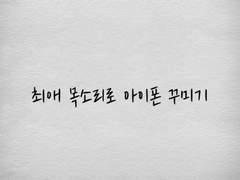 최애 목소리로 아이폰 꾸미기